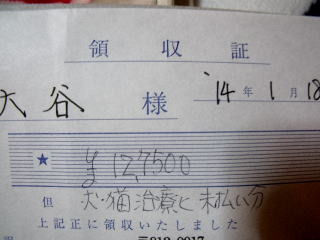 領収証
大谷 様 '14年1月18
★ ¥127,500
但 犬・猫治療と未払い分
上記正に領収いたしました